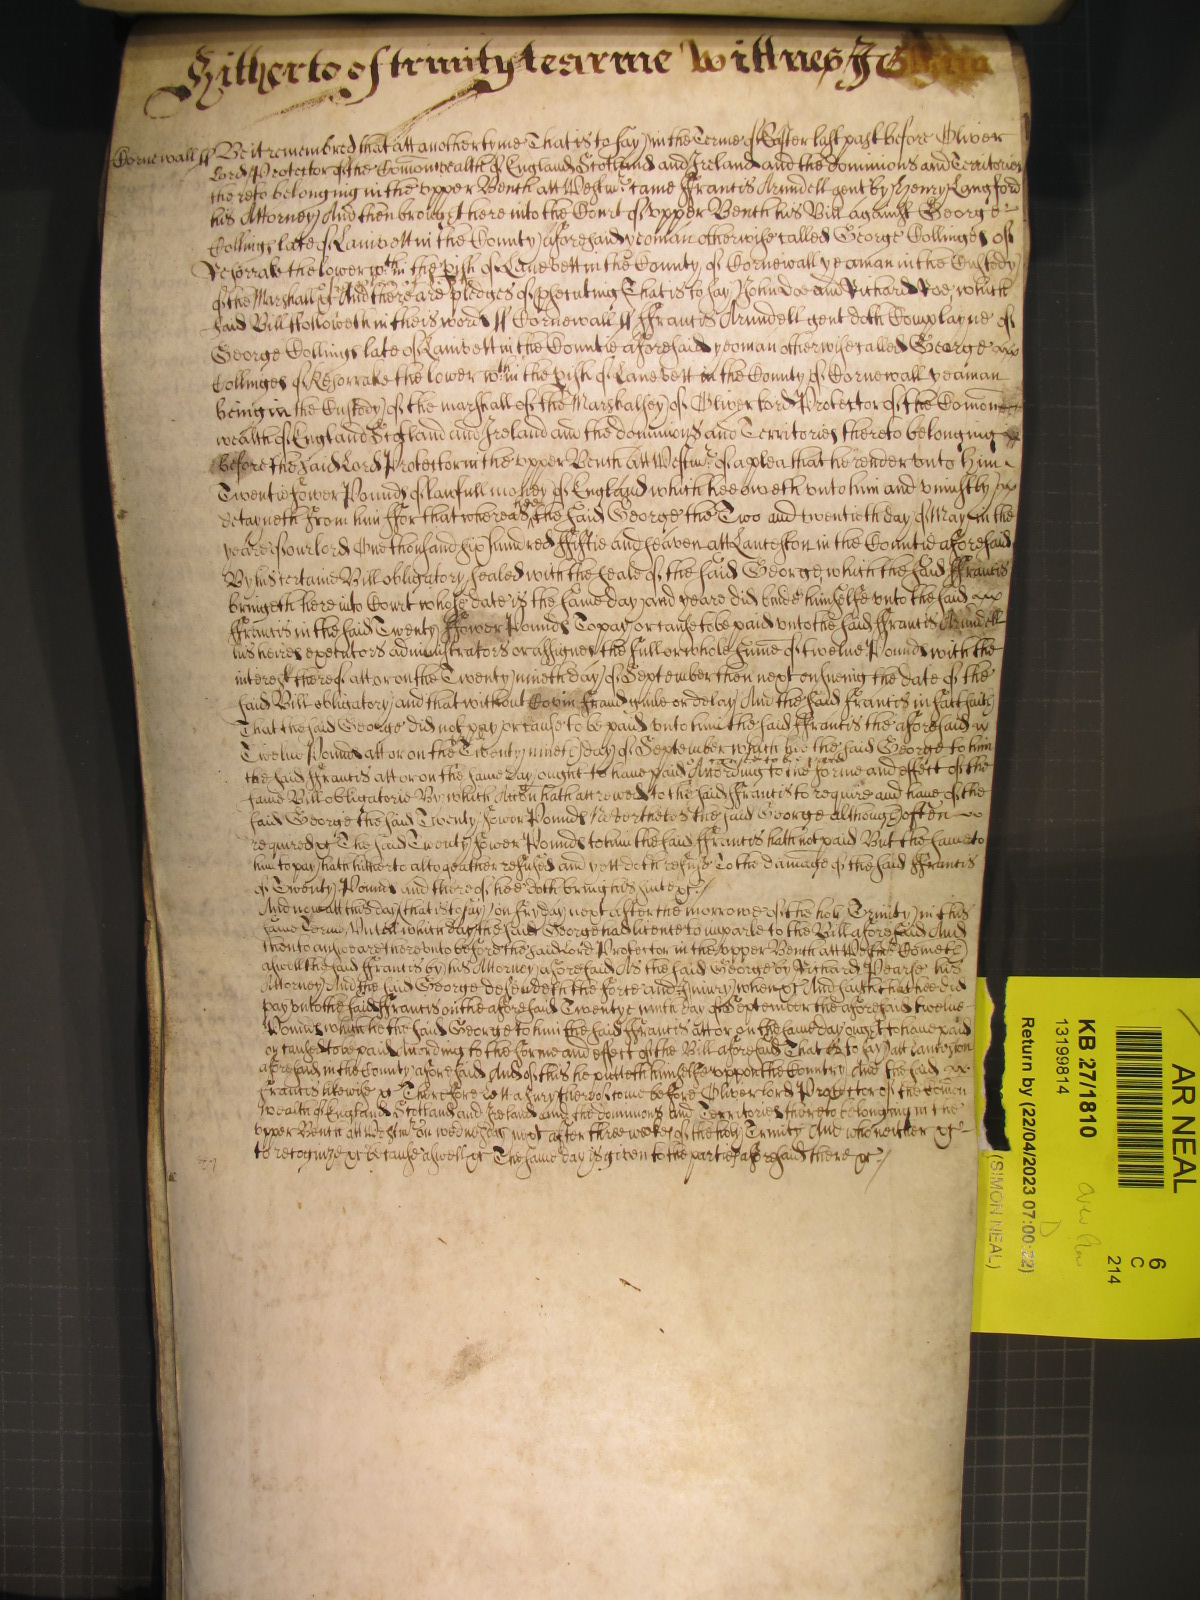 Hitherto of trinity tearme Wittnes J
Cornewall ss Be it remembred that att another tyme That is to say in the Terme of Easter last past before Oliver
Lord Protector of the Comonwealth of England Scotland and Ireland and the dominions and Territories
thereto belonging in the vpper Bench att Westmr came ffrancis Arundell gent by Henry Langford
his Attorney And then brought here into the Court of vpper Bench his Bill against George
Collings late of Lanivett in the County aforesaid yeoman otherwise called George Collinges of
the lower wthin the pish of Lanevett in the County of Cornewall yeaman in the Custody
of the Marshall &c And there are pledges of psecuting That is to say John doe and Richard Roe, which
said Bill ffolloweth in theis words ss Cornewall ss ffrancis Arundell gent doth Complayne of
George Collings late of Lanivett in the Countie aforesaid yeoman otherwise called George
Collinges of the lower wthin the pish of Lanevett in the County of Cornewall yeaman
being in the Custody of the marshall of the Marshalsey of Oliver Lord Protector of the Comon
wealth of England Scotland and Ireland and the dominions and Territories thereto belonging
before the said Lord Protector in the vpper Bench att Westmr of a plea that he render vnto him
Twentie ffower Pounds of lawfull money of England which hee oweth vnto him and vniustly
detayneth from him ffor that whereas the said George the Two and twentieth day of May in the
yeare of our lord One thousand six hundred ffiftie and seaven att Lanceston in the Countie aforesaid
By his certaine Bill obligatory sealed with the seale of the said George, which the said ffrancis
bringeth here into Court whose date is the same day and yeare did binde himselfe vnto the said
ffrancis in the said Twenty ffower Pounds To pay or cause to be paid vnto the said ffrancis Arundell
his heires executors administrators or assignes the full or whole sume of twelue Pounds with the
interest thereof att or on the Twenty nineth day of September then next ensueing the date of the
said Bill obligatory and that without Covin fraud guile or delay And the said ffrancis in fact saith
That the said George did not pay or cause to be paid vnto him the said ffrancis the aforesaid
Twelue Pounds att or on the Twenty nineth day of September which hee the said George to him
the said ffrancis att or on the same day ought to haue paid or cause to be paid According to the forme and effect of the
same Bill obligatorie By which Accon hath accrewed to the said ffrancis to require and haue of the
said George the said Twenty ffower Pounds Neverthelesse the said George although often
required &c The said Twenty ffower Pounds to him the said ffrancis hath not paid But the same to
him to pay hath hitherto altogeather refused and yett doth refuse To the damage of the said ffrancis
of Twenty Pounds and thereof hee doth bring his suite &c
And now att this day (that is to say) on ffryday next after the morrowe of the holy Trinity in this
same Terme, Vntill which day the said George had licence to imparle to the Bill aforesaid And
then to answeare therevnto before the said Lord Protector in the vpper Bench att Westmr Cometh
aswell the said ffrancis by his Attorney aforesaid As the said George by Richard Pearse his
Attorney And the said George defendeth the force and Iniury when &c And saith that hee did
pay vnto the said ffrancis on the aforesaid Twentye ninth day of September the aforesaid twelue
Pounds which he the said George to him the said ffrancis att or on the same day ought to haue paid
or caused to be paid According to the forme and effect of the Bill aforesaid That is to say att Lanceston
aforesaid in the County aforesaid And of this he putteth himselfe vppon the Country And the said
ffrancis likewise &c Therefore lett a Jury thereof come before Oliver lord Protector of the comon
wealth of England Scotland and Ireland and the dominions and Territories thereto belonging in the
vpper Bench att Westmr on wednesday next after three weekes of the holy Trinity And who neither &c
to recognize &c because aswell &c The same day is given to the parties aforesaid there &c
AR NEAL
6
C
214
KB 27/1810
13199814
Return by (22/04/2023 07:00:22)
(SIMON NEAL)